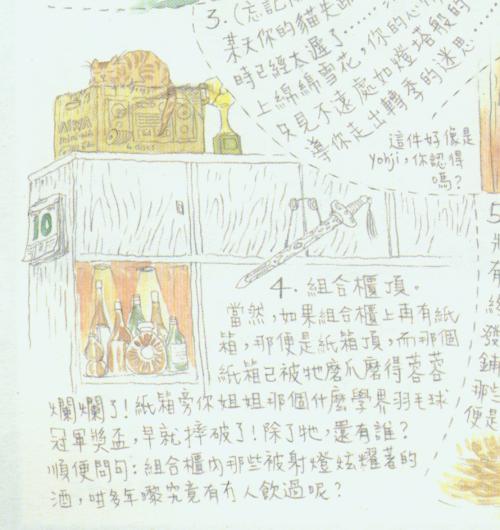 3.（忘記
某天你的貓失蹤
時已經太遲了……你的心
上綿綿雪花，如燈塔般的
又見不遠處
導你走出轉季的迷思……
這件好像是
Yohji，你認得
嗎？
AIWA
10
4. 組合櫃頂。
當然，如果組合櫃上再有紙
箱，那便是紙箱頂，而那個
紙箱已被牠磨爪磨得蓉蓉
爛爛了！紙箱旁你姐姐那個什麼學界羽毛球
冠軍獎盃，早就摔破了！除了牠，還有誰？
順便問句：組合櫃內那些被射燈炫耀著的
酒，咁多年嚟究竟有冇人飲過呢？
5
有
發
鋪
那
便是